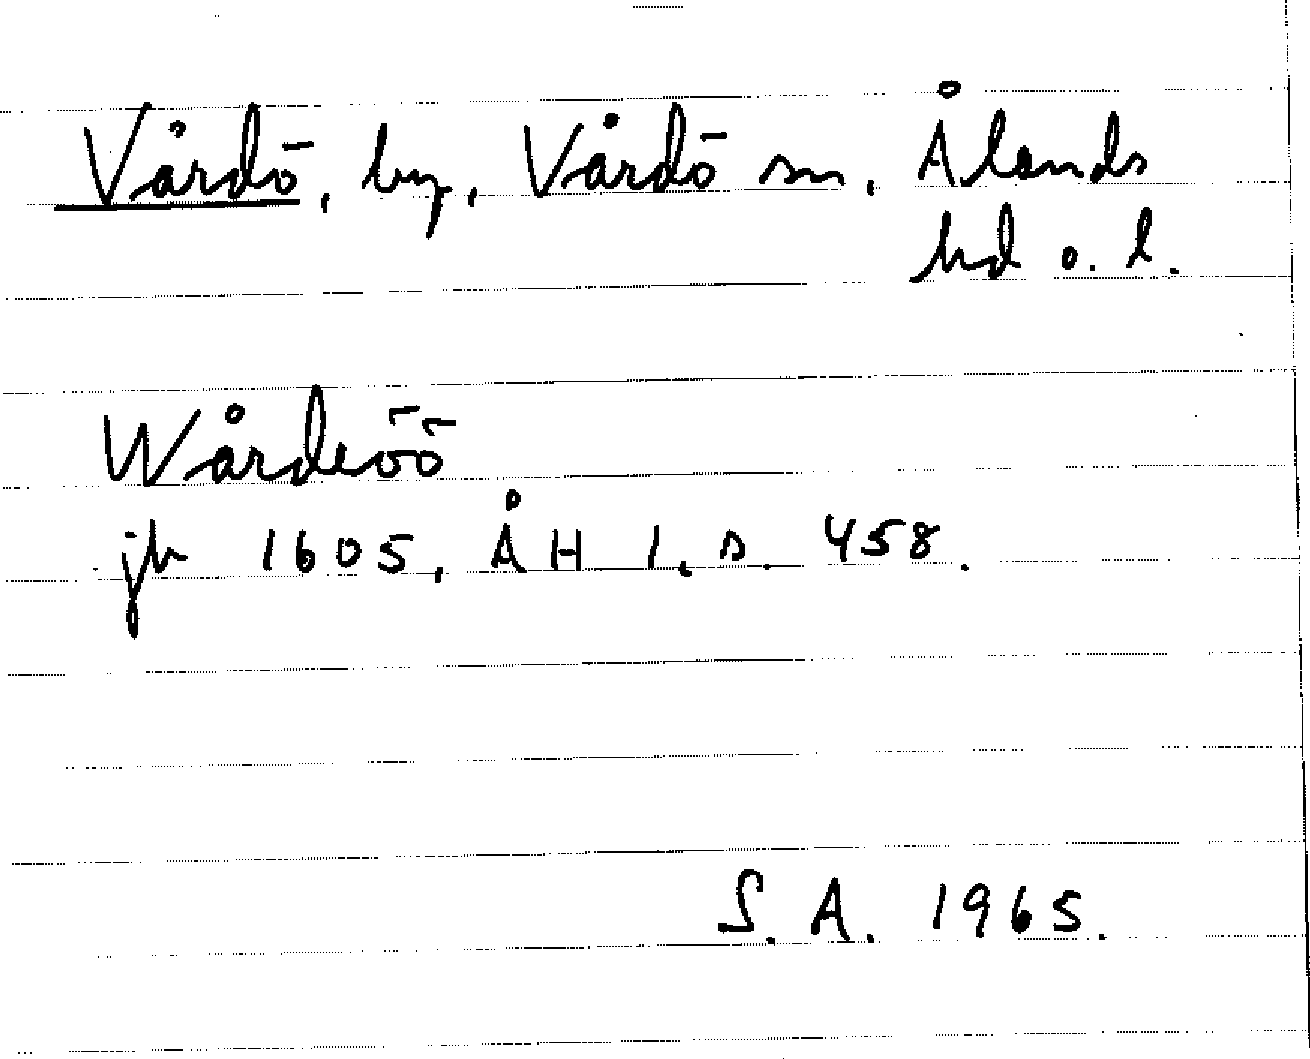 Vårdö, by, Vårdö sn, Ålands
hd o. l.
Wårdeöö
jb 1605, ÅH 1, s. 458.
S. A. 1965.